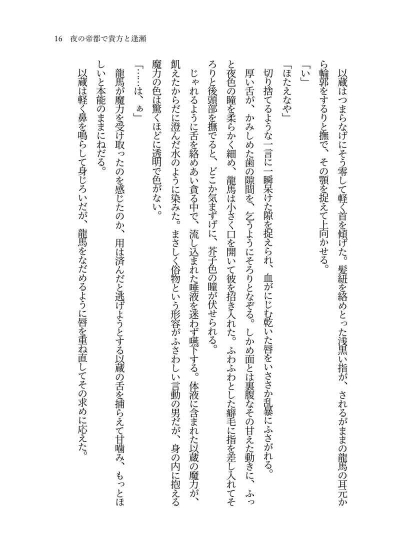 16　夜の帝都で貴方と逢瀬
　以蔵はつまらなげにそう零して軽く首を傾げた。髪紐を絡めとった浅黒い指が、されるがままの龍馬の耳元か
ら輪郭をするりと撫で、その顎を捉えて上向かせる。
「い」
「ほたえなや」
　切り捨てるような一言に一瞬呆けた隙を捉えられ、血がにじむ乾いた唇をいささか乱暴にふさがれる。
　厚い舌が、かみしめた歯の隙間を、乞うようにそろりとなぞる。しかめ面とは裏腹なその甘えた動きに、ふっ
と夜色の瞳を柔らかく細め、龍馬は小さく口を開いて彼を招き入れた。ふわふわとした癖毛に指を差し入れてそ
ろりと後頭部を撫でると、どこか気まずげに、芥子色の瞳が伏せられる。
　じゃれるように舌を絡めあい貪る中で、流し込まれた唾液を迷わず嚥下する。体液に含まれた以蔵の魔力が、
飢えたからだに澄んだ水のように染みた。まさしく俗物という形容がふさわしい言動の男だが、身の内に抱える
魔力の色は驚くほどに透明で色がない。
「……は、ぁ」
　龍馬が魔力を受け取ったのを感じたのか、用は済んだと逃げようとする以蔵の舌を捕らえて甘噛み、もっとほ
しいと本能のままにねだる。
　以蔵は軽く鼻を鳴らして身じろいだが、龍馬をなだめるように唇を重ね直してその求めに応えた。